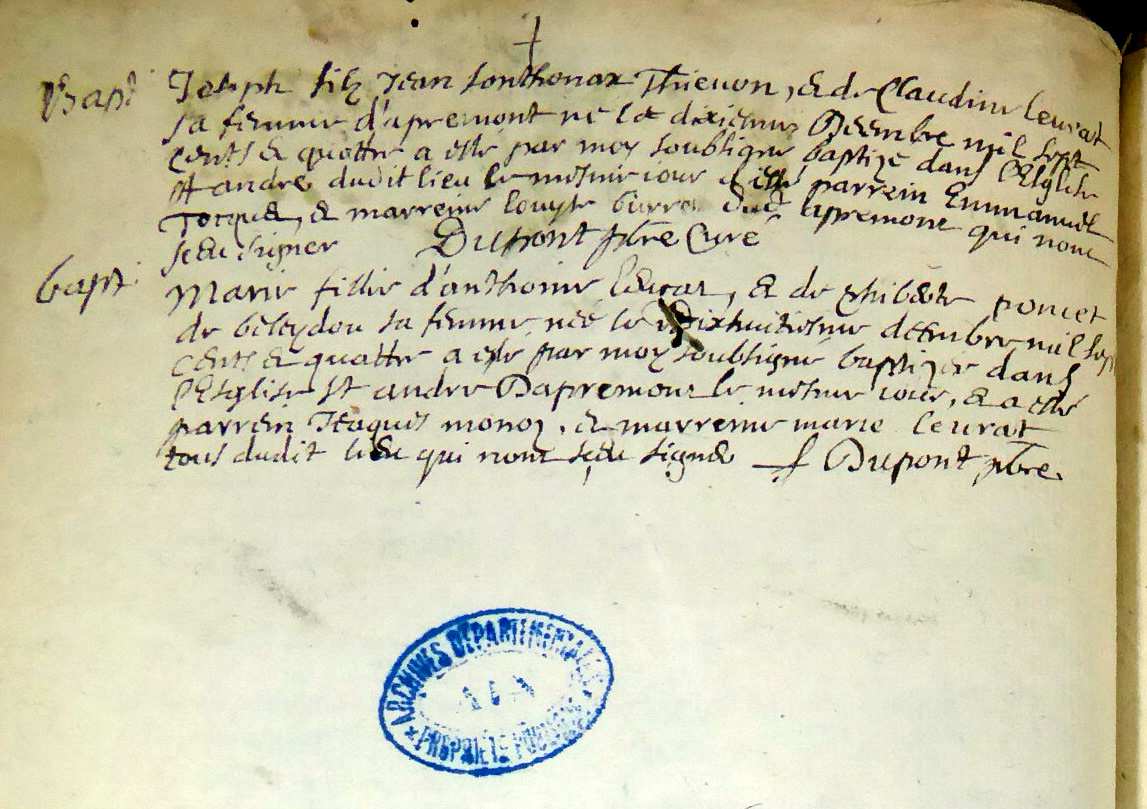 Bapt. Joseph filz Jean Sonthonax Thievon, & de Claudine leurat
sa femme d'apremont né le dixiesme Decembre mil sept
cents & quattre a esté par moy soubsigné baptizé dans l'Esglise
st andre dudit lieu le mesme iour parrein Emmanuel
& marreine louyse dud apremont qui nont
sceu signer Dupont pbre Curé
bapt. Marie fillie d'anthoine leurat, & de phiberte poncet
de beleydou sa femme née le Dixhuitiesme decembre mil sept
cents & quattre a esté par moy soubsigné baptizée dans
l'Esglise st andre Dapremont le mesme iour, & a esté
parrein Jcaques monoz, & marreine marie leurat
tous dudit lieu qui nont sceu signé Dupont pbre
ARCHIVES DÉPARTEMENTALES
AIN
PROPRIÉTÉ PUBLIQUE